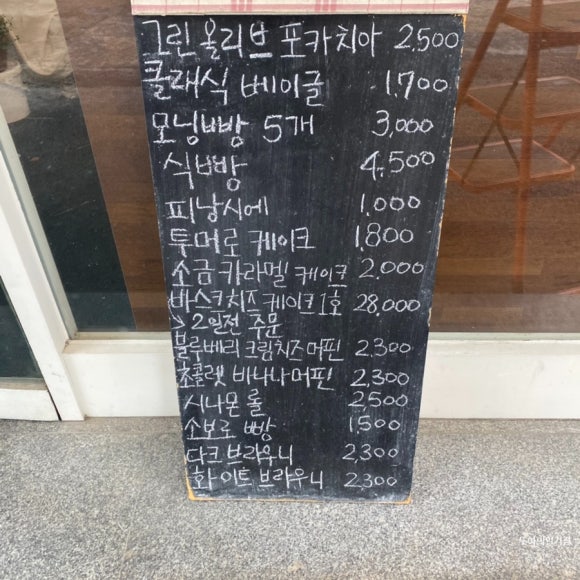 그린 올리브 포카치아 2.500
클래식 베이글 1.700
모닝빵 5개 3,000
식빵 4.500
피낭시에 1.000
투머로 케이크 1,800
소금 카라멜 케이크 2.000
바스크치즈 케이크 1호 28,000
> 2일전 주문
블루베리 크림치즈 머핀 2.300
초콜렛 바나나 머핀 2,300
시나몬 롤 2500
소보로 빵 1,500
다크 브라우니 2,300
화이트 브라우니 2.300